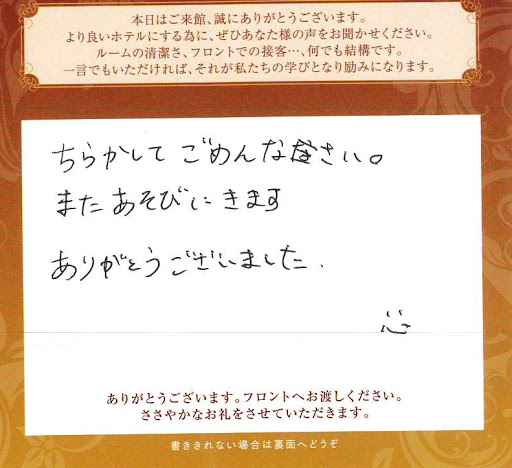 本日はご来館、誠にありがとうございます。
より良いホテルにする為に、ぜひあなた様の声をお聞かせください。
ルームの清潔さ、フロントでの接客…、何でも結構です。
一言でもいただければ、それが私たちの学びとなり励みになります。
ちらかして ごめんなさい。
またあそびにきます
ありがとうございました.
心
ありがとうございます。フロントへお渡しください。
ささやかなお礼をさせていただきます。
書ききれない場合は裏面へどうぞ